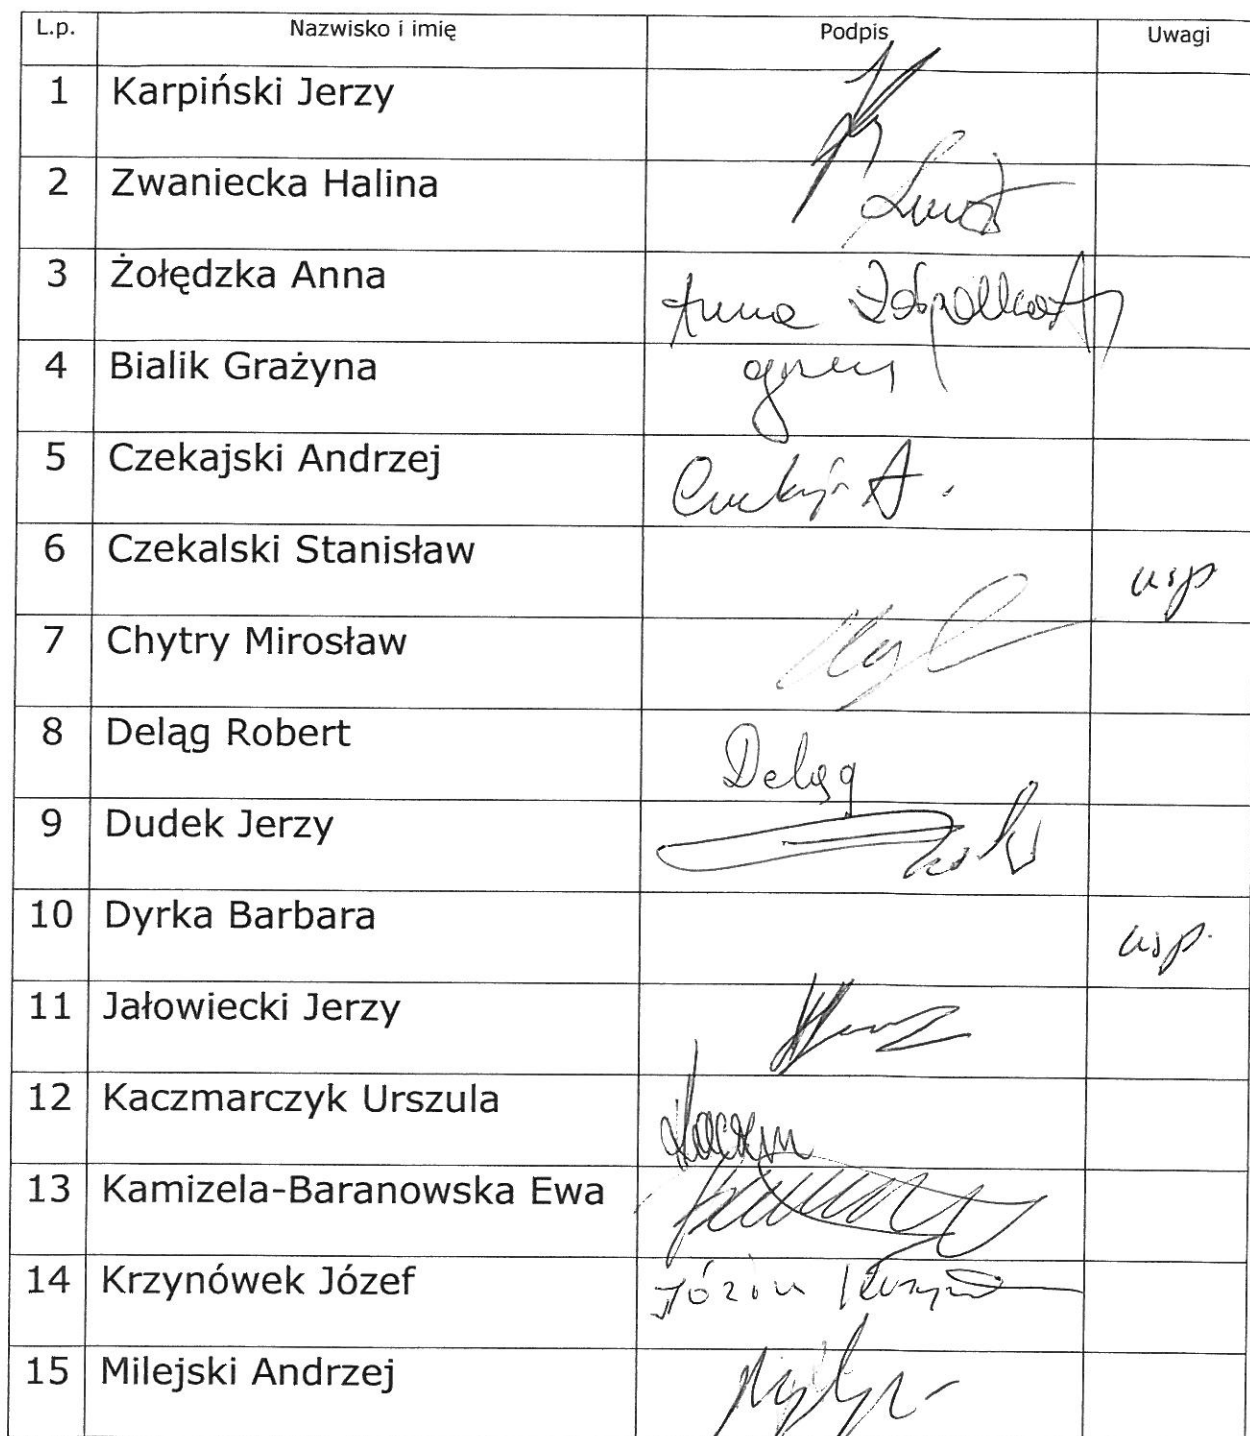 L.p. Nazwisko i imię Podpis Uwagi
1 Karpiński Jerzy
2 Zwaniecka Halina
3 Żołędzka Anna Anna
4 Bialik Grażyna
5 Czekajski Andrzej A.
6 Czekalski Stanisław usp
7 Chytry Mirosław
8 Deląg Robert Deląg
9 Dudek Jerzy
10 Dyrka Barbara usp.
11 Jałowiecki Jerzy
12 Kaczmarczyk Urszula
13 Kamizela-Baranowska Ewa
14 Krzynówek Józef
15 Milejski Andrzej